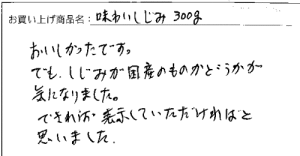 お買い上げ商品名：味わいしじみ 300g
おいしかったです。
でも、しじみが国産のものかどうかが
気になりました。
できれば 表示していただければと
思いました。